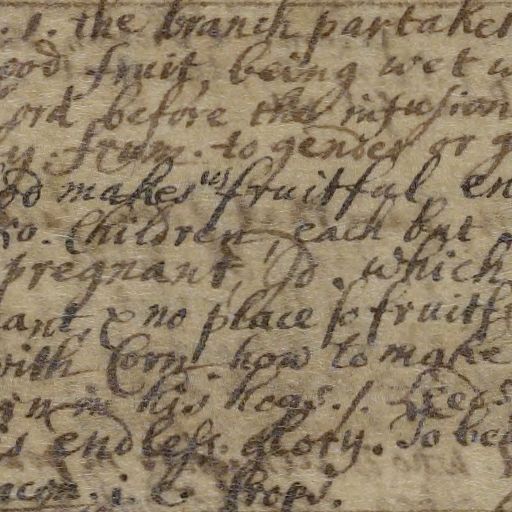 . 1. the branch partaket
ood fruit, being wet w
ord before the infusion
y. frum. to gender or g
od makes us fruitful en
ko. Children, each but
pregnant, Jo. which
ant, & no place so fruitf
with Corn. how to make
in his
s endless. glory. To be
acon. i. e. props.